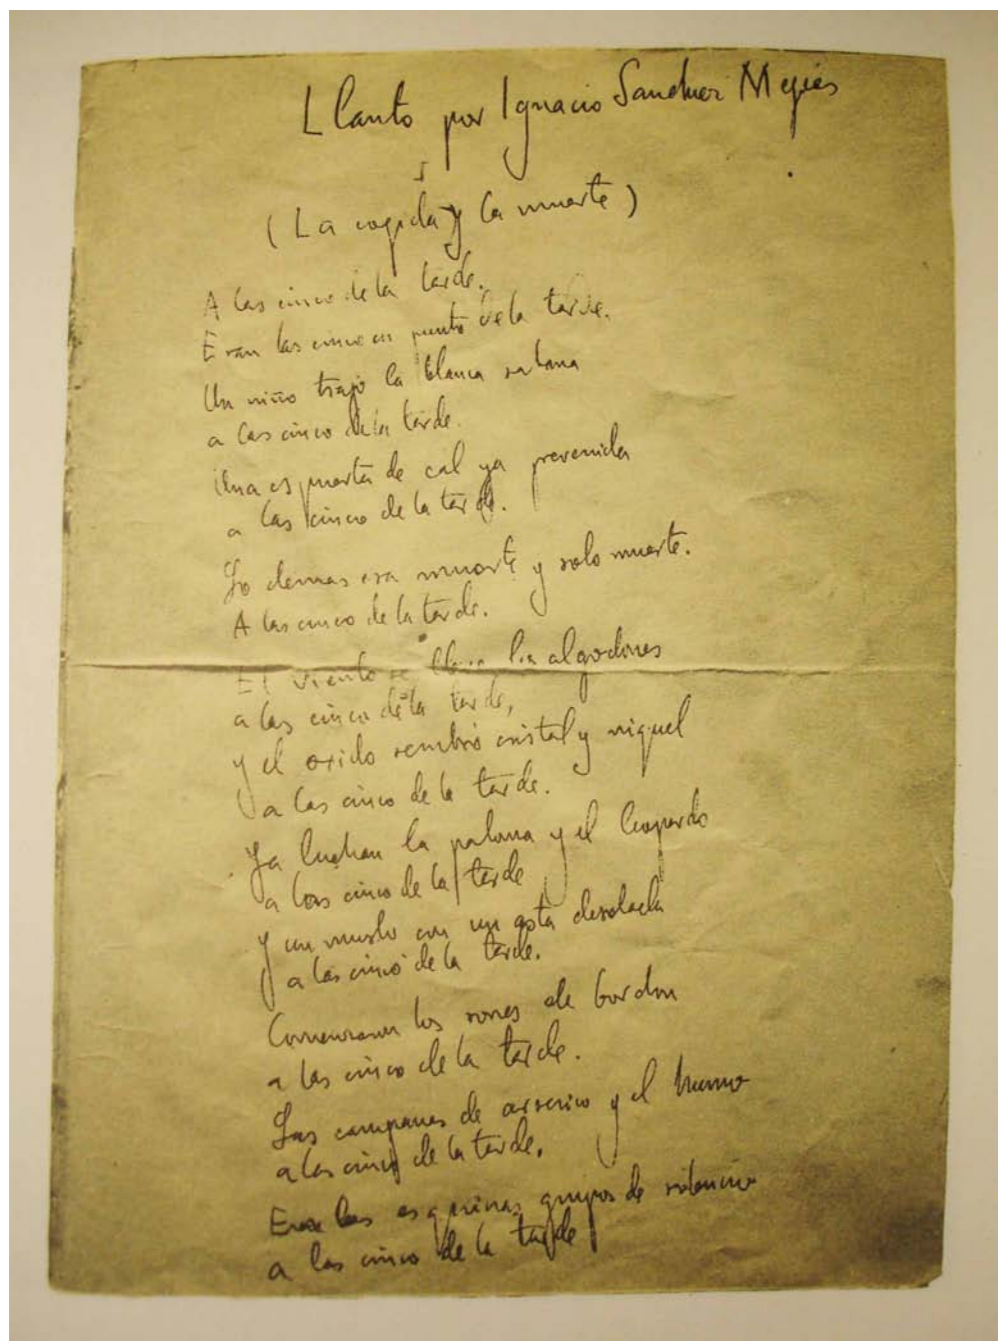 Llanto por Ignacio Sanchez Mejias
(La cogida y la muerte)
A las cinco de la tarde.
Eran las cinco en punto de la tarde.
Un niño trajo la blanca sabana
a las cinco de la tarde.
Una espuerta de cal ya prevenida
a las cinco de la tarde.
Lo demas era muerte y solo muerte.
A las cinco de la tarde.
El viento se llevo los algodones
a las cinco de la tarde,
y el oxido sembró cristal y niquel
a las cinco de la tarde.
Ya luchan la paloma y el leopardo
a las cinco de la tarde
y un muslo con un asta desolada
a las cinco de la tarde.
Comenzaron los sones de bordon
a las cinco de la tarde.
Las campanas de arsenico y el humo
a las cinco de la tarde.
En las esquinas grupos de silencio
a las cinco de la tarde